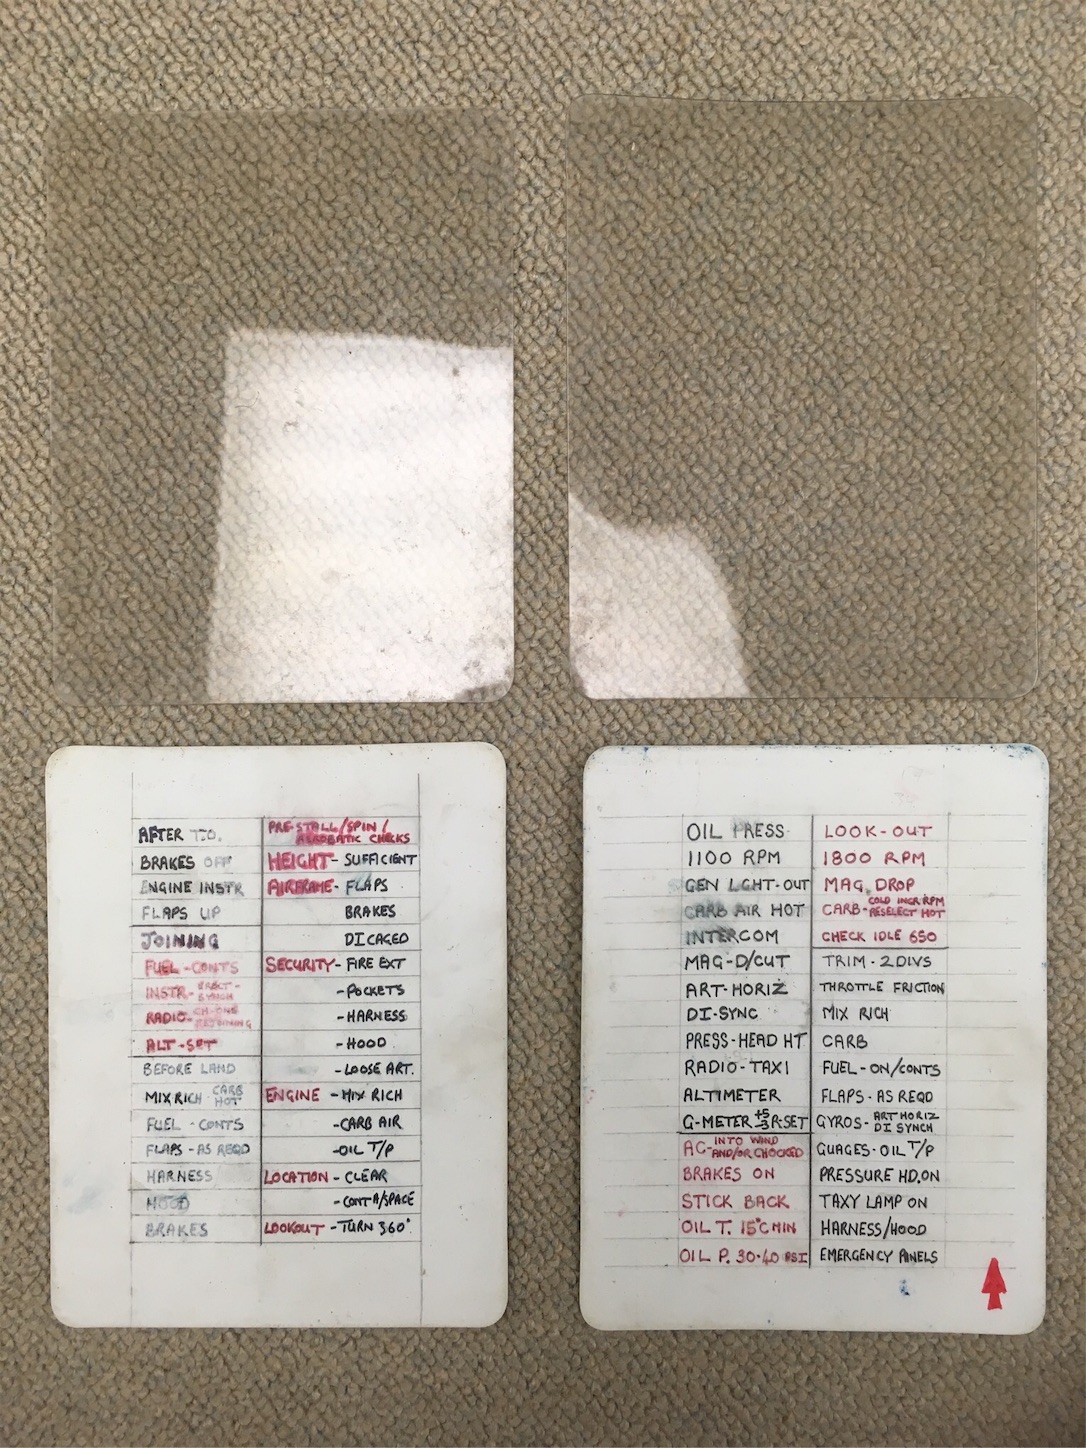 AFTER T.O.
BRAKES OFF
ENGINE INSTR
FLAPS UP
JOINING
FUEL - CONTS
INSTR - ERECT -
SYNCH
RADIO - CH-ONE
REJOINING
ALT - SET
BEFORE LAND
MIX RICH CARB
HOT
FUEL - CONTS
FLAPS - AS REQD
HARNESS
HOOD
BRAKES
PRE-STALL/SPIN/
AEROBATIC CHECKS
HEIGHT - SUFFICIENT
AIRFRAME - FLAPS
BRAKES
DI CAGED
SECURITY - FIRE EXT
- POCKETS
- HARNESS
- HOOD
- LOOSE ART.
ENGINE - MIX RICH
- CARB AIR
- OIL T/P
LOCATION - CLEAR
- CONT A/SPACE
LOOKOUT - TURN 360°
OIL PRESS
1100 RPM
GEN LGHT-OUT
CARB AIR HOT
INTERCOM
MAG-D/CUT
ART-HORIZ
DI-SYNC
PRESS-HEAD HT
RADIO-TAXI
ALTIMETER
G-METER +5 -3 R-SET
AC- INTO WIND
AND/OR CHOCKED
BRAKES ON
STICK BACK
OIL T. 15°C MIN
OIL P. 30-40 PSI
LOOK-OUT
1800 RPM
MAG DROP
CARB- COLD INCR RPM
RESELECT HOT
CHECK IDLE 650
TRIM - 2 DIVS
THROTTLE FRICTION
MIX RICH
CARB
FUEL-ON/CONTS
FLAPS - AS REQD
GYROS- ART HORIZ
DI SYNCH
GUAGES - OIL T/P
PRESSURE HD.ON
TAXY LAMP ON
HARNESS/HOOD
EMERGENCY PANELS